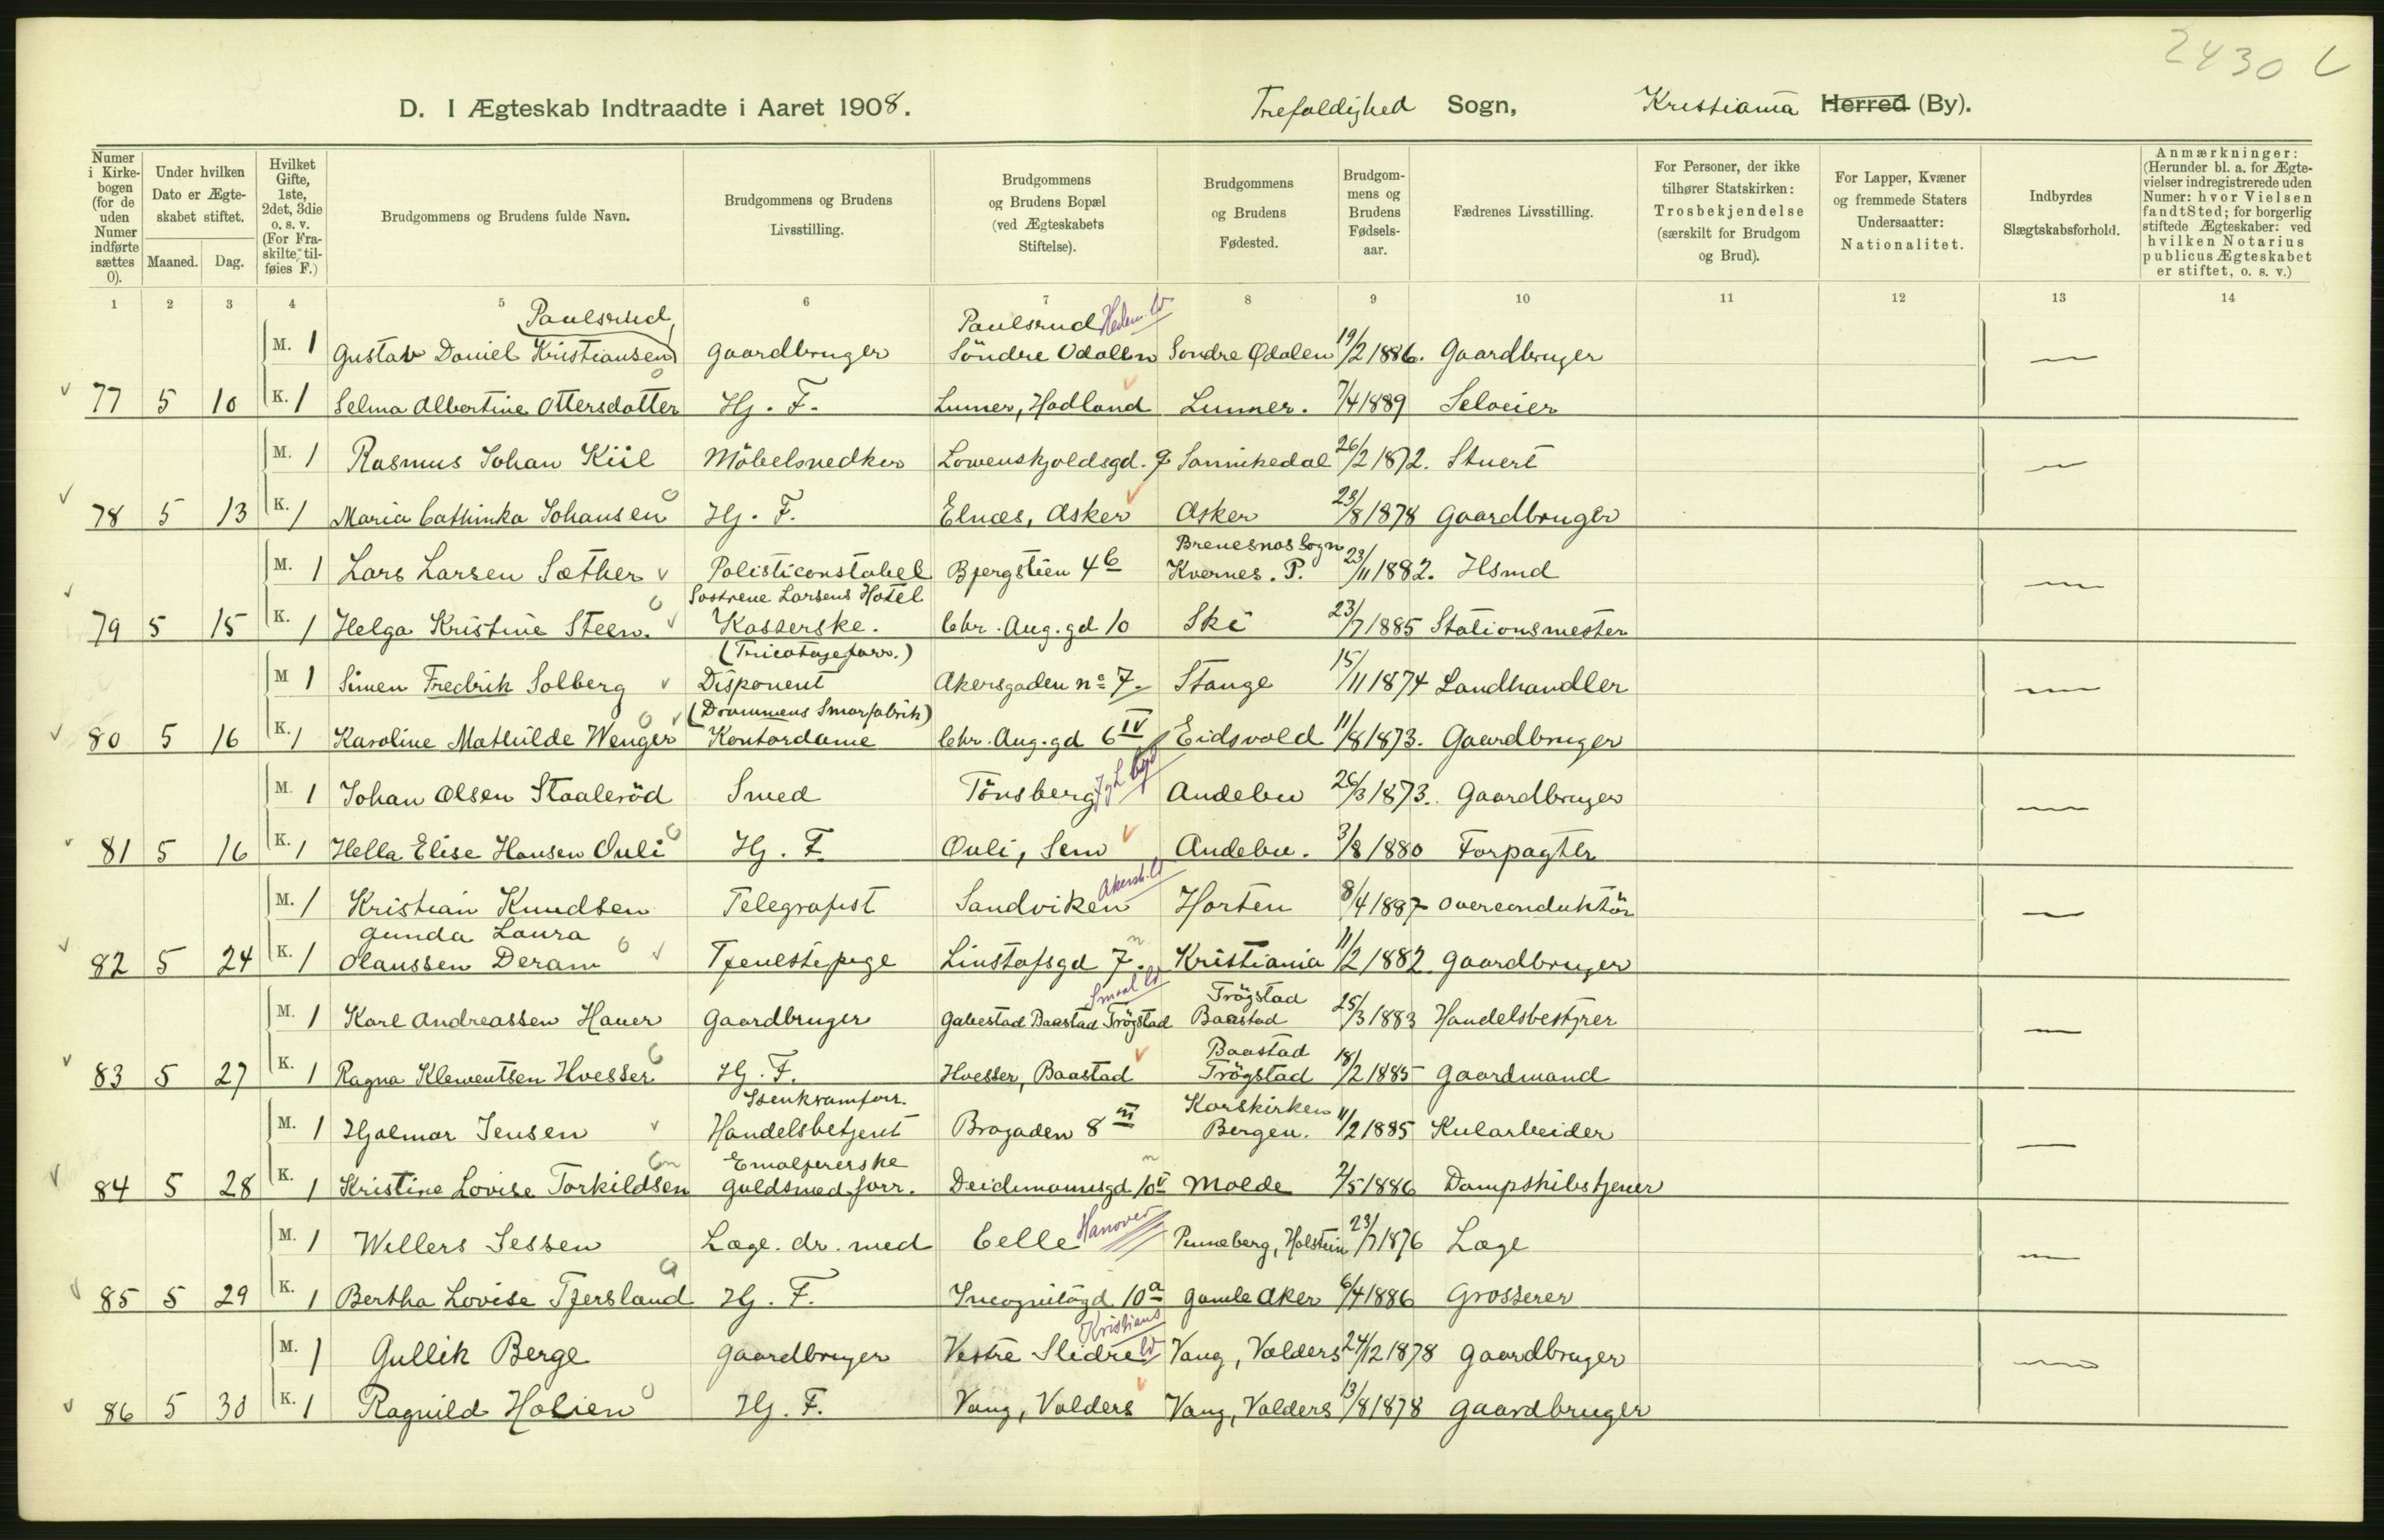 2430
D. I Ægteskab Indtraadte i Aaret 1908.
Trefoldighed Sogn,
Kristiania Herred (By).
Numer i Kirkebogen (for de uden Numer indførte sættes 0).
Under hvilken Dato er Ægteskabet stiftet.
Maaned. Dag.
Hvilket Gifte, 1ste, 2det, 3die o. s. v. (For Fraskilte tilføies F.)
Brudgommens og Brudens fulde Navn.
Brudgommens og Brudens Livsstilling.
Brudgommens og Brudens Bopæl (ved Ægteskabets Stiftelse).
Brudgommens og Brudens Fødested.
Brudgommens og Brudens Fødselsaar.
Fædrenes Livsstilling.
For Personer, der ikke tilhører Statskirken: Trosbekjendelse (særskilt for Brudgom og Brud).
For Lapper, Kvæner og fremmede Staters Undersaatter: Nationalitet.
Indbyrdes Slægtskabsforhold.
Anmærkninger: (Herunder bl. a. for Ægtevielser indregistrerede uden Numer: hvor Vielsen fandt Sted; for borgerlig stiftede Ægteskaber: ved hvilken Notarius publicus Ægteskabet er stiftet, o. s. v.)
1 2 3 4 5 6 7 8 9 10 11 12 13 14
Paulsrud Paulsrud Hedem.
M. 1 Gustav Daniel Kristiansen Gaardbruger Söndre Odalen Sondre Odalen 19/2 1886. Gaardbruger
77 5 10 K. 1 Selma Albertine Ottersdatter Hj. F. Lunner, Hadland Lunner. 7/4 1889 Seloeier
M. 1 Rasmus Johan Kiil Möbelsnedker Lowenskjoldsgd. 9 Sannikedal 26/2 1872. Stuert
78 5 13 K. 1 Maria Cathinka Johansen Hj. F. Elnæs, Asker Asker 23/8 1878 Gaardbruger
Brenesnos Sogn
M. 1 Lars Larsen Sæther Politiconstabel Bjergstien 4b Kvernes. P. 23/11 1882. Hsmd
Sostrene Larsens Hotel
79 5 15 K. 1 Helga Kristine Steen. Kasserske. Chr. Aug. gd 10 Ski 23/7 1885 Stationsmester
(Tricotageforr.)
M 1 Simen Fredrik Solberg Disponent Akersgaden no 7. Stange 15/11 1874 Landhandler
(Drammens Smørfabrik)
80 5 16 K. 1 Karoline Mathilde Wenger Kontordame Chr. Aug. gd 6 IV Eidsvold 11/8 1873. Gaardbruger
M. 1 Johan Olsen Staaleröd Smed Tönsberg Andebu 26/3 1873. Gaardbruger
81 5 16 K. 1 Hella Elise Hansen Ouli Hj. F. Ouli, Sem Andebu. 3/8 1880 Forpagter
Akersh.
M. 1 Kristian Knudsen Telegrafist Sandviken Horten 8/4 1887 Overconduktör
Gunda Laura
82 5 24 K. 1 Olaussen Deram Tjenestepige Linstofsgd 7. Kristiania 11/2 1882 Gaardbruger
Smaal Trögstad
M. 1 Karl Andreassen Hauer Gaardbruger Gabestad Baastad Trögstad Baastad 25/3 1883 Handelsbestyrer
Baastad
83 5 27 K. 1 Ragna Klementsen Hvesser Hj. F. Hvesser, Baastad Trögstad 18/2 1885 Gaardmand
Isenkramforr. Korskirken
M. 1 Hjalmar Jensen Handelsbetjent Brogaden 8 III Bergen. 11/2 1885 Kularbeider
Emaljererske
84 5 28 K. 1 Kristine Lovise Torkildsen Guldsmedforr. Deichmannsgd 10 V Molde 2/5 1886 Dampskibstjener
Hanover
M. 1 Wellers Jessen Læge. dr. med Celle Pinneberg, Holstein 23/7 1876 Læge
85 5 29 K. 1 Bertha Lovise Tjersland Hj. F. Incognitogd 10a Gamle Aker 6/4 1886 Grosserer
Kristians
M. 1 Gullik Berge Gaardbruger Vestre Slidre Vang, Valders 24/12 1878 Gaardbruger
86 5 30 K. 1 Ragnild Holien Hj. F. Vang, Valders Vang, Valders 13/8 1878 Gaardbruger